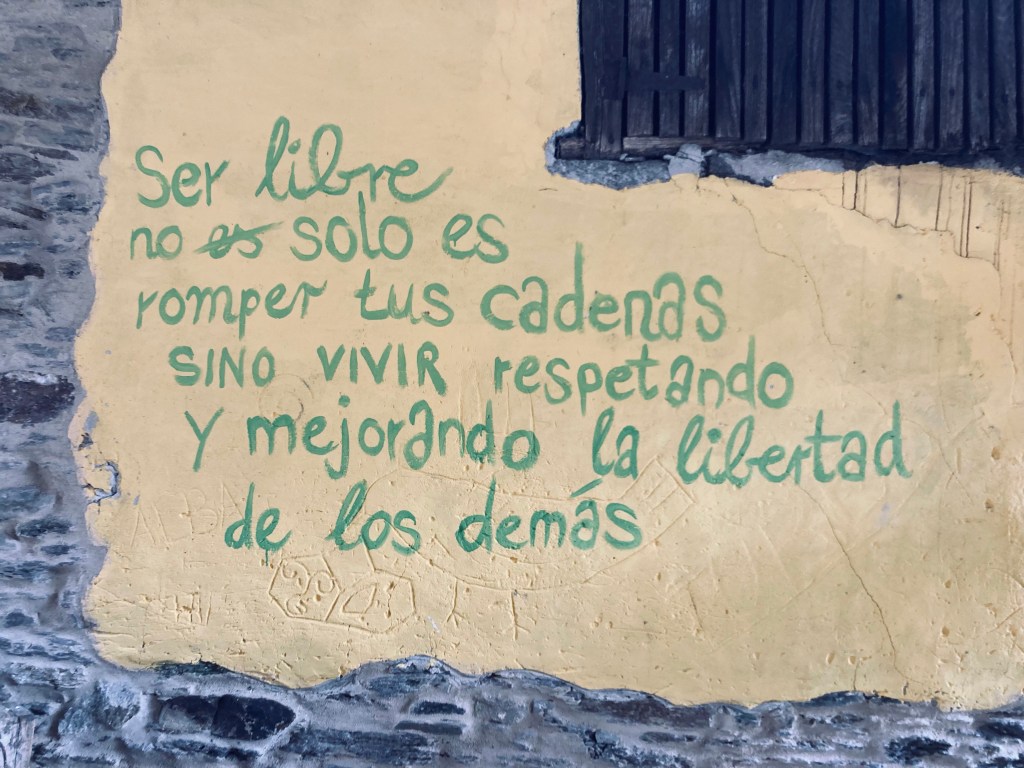 Ser libre
no es solo es
romper tus cadenas
SINO VIVIR respetando
Y mejorando la libertad
de los demás